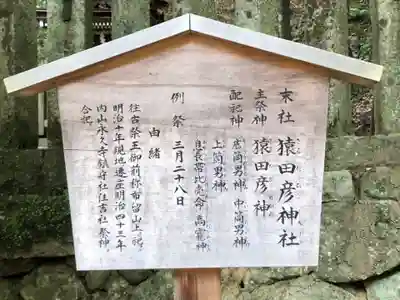 末社 猿田彦神社
主祭神 猿田彦神
配祀神 底筒男神 中筒男神
上筒男神
息長帯比売命 高龗神
例祭 三月二十八日
由緒
往古祭王御前称布留山上ニ祀
明治十年現地遷座明治四十三年
内山永久寺鎮守社住吉社祭神
合祀